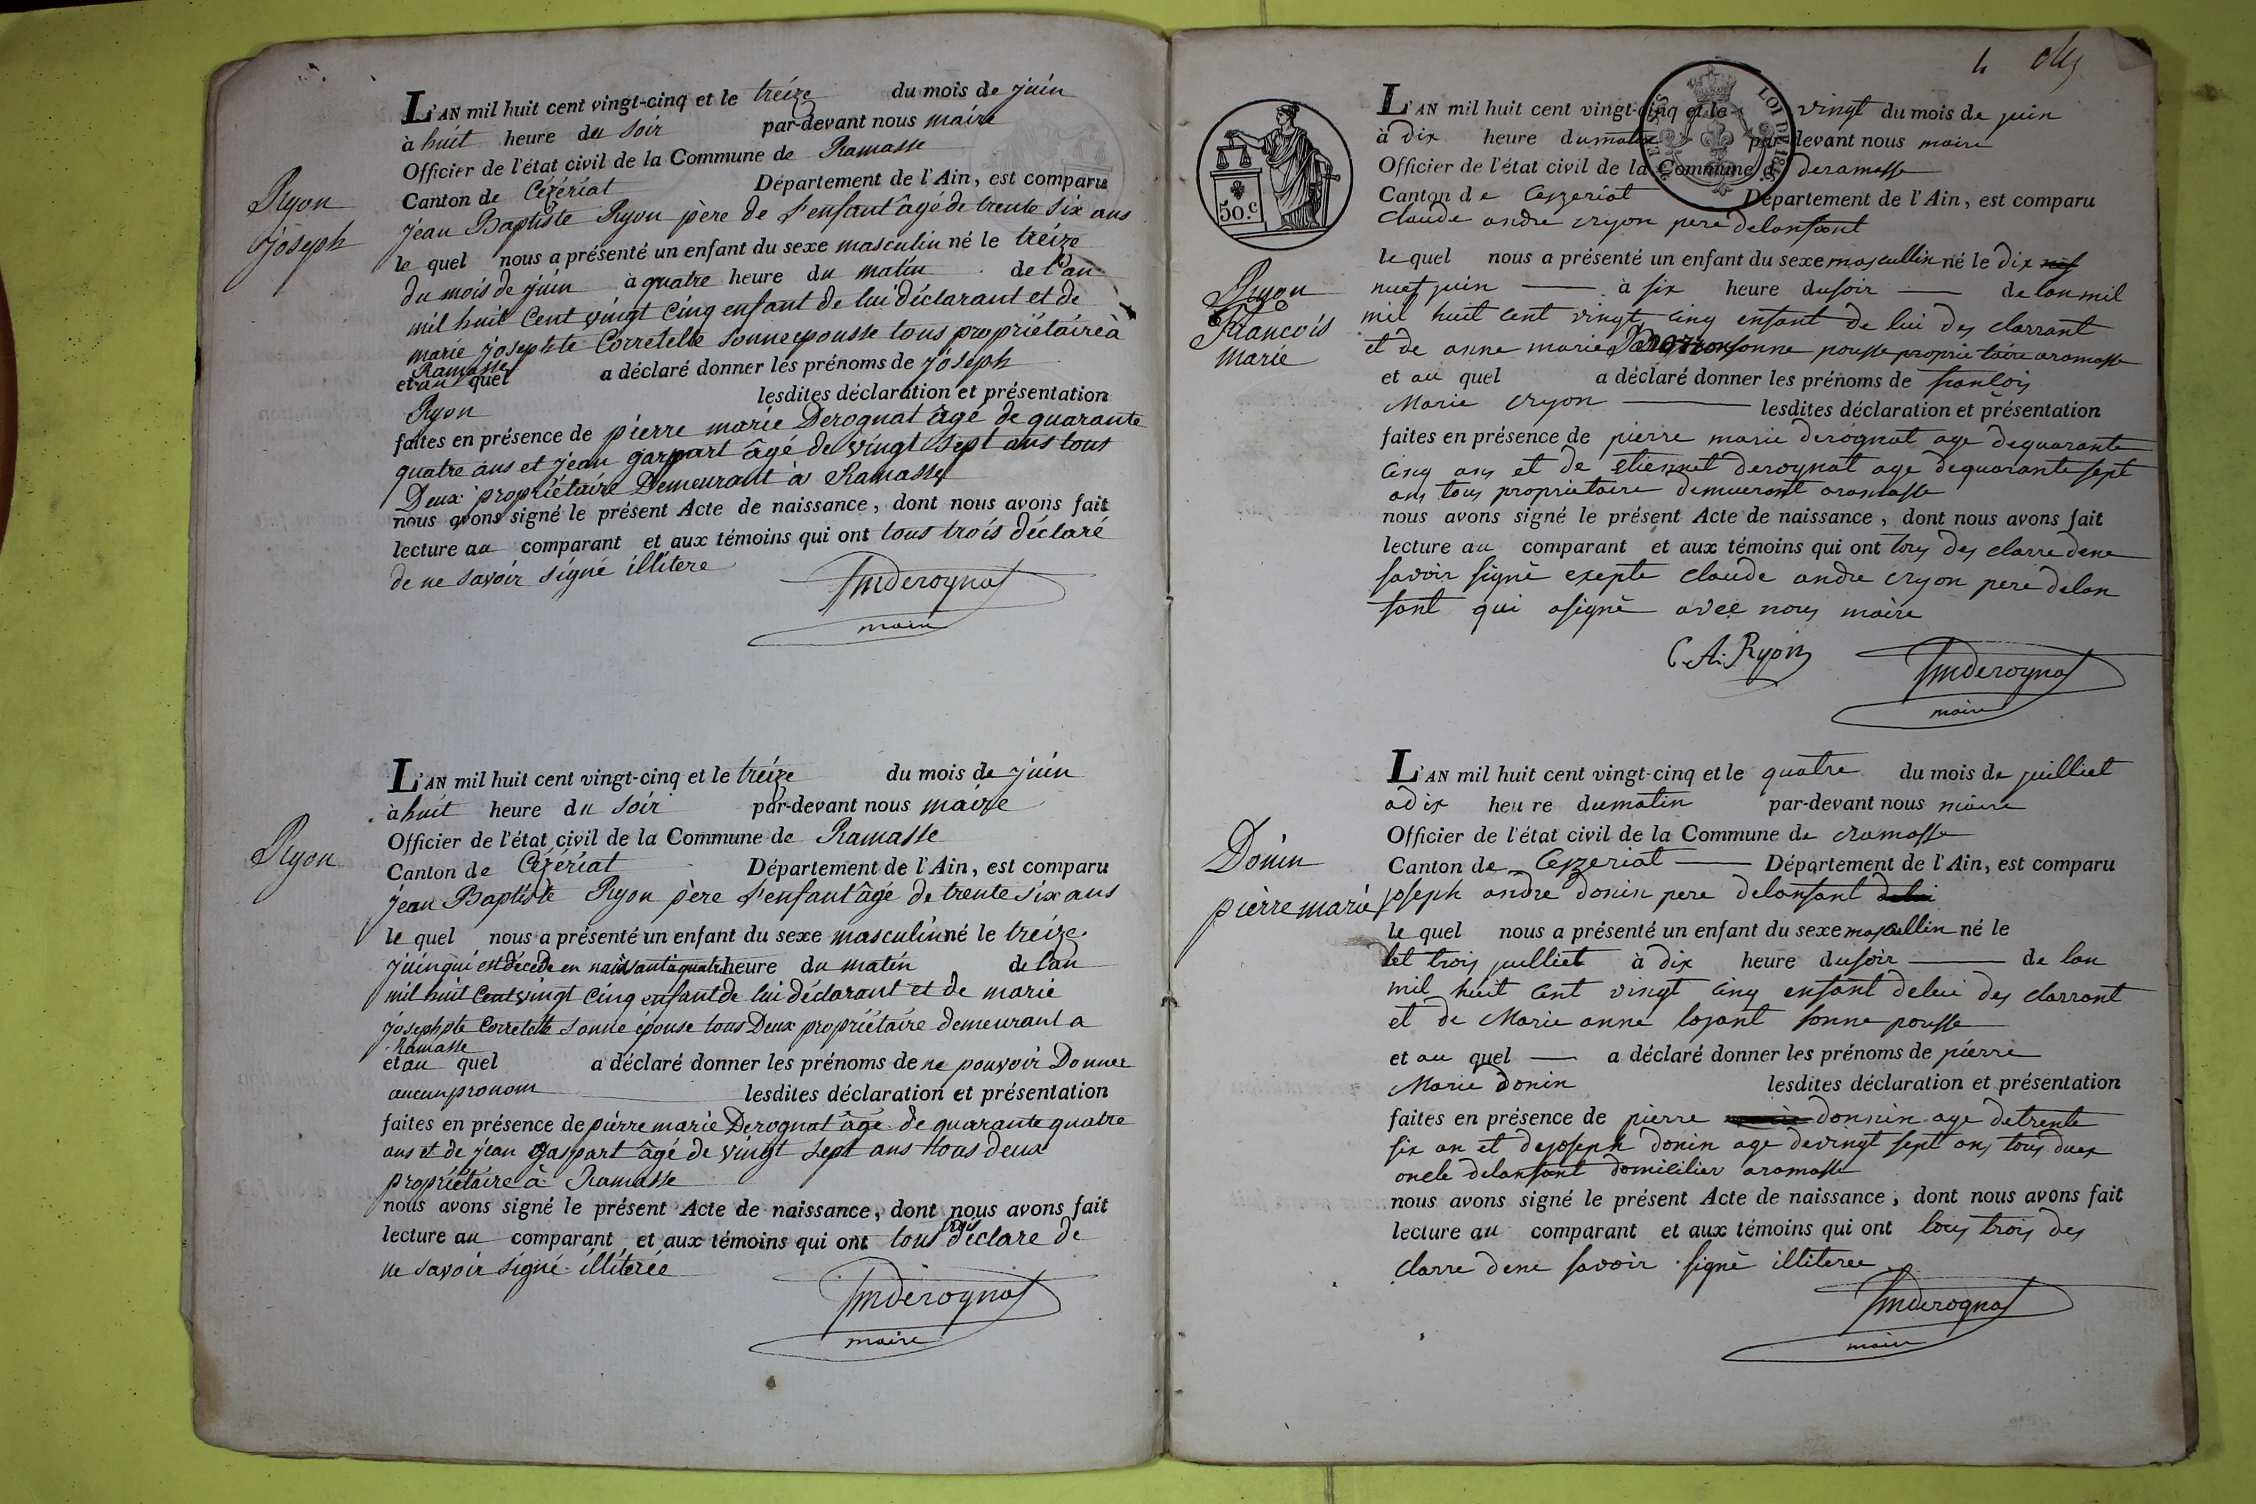 Ryon
joseph
L'AN mil huit cent vingt-cinq et le treize du mois de juin
à huit heure du soir par-devant nous maire
Officier de l'état civil de la Commune de Ramasse
Canton de Cézériat Département de l'Ain, est comparu
jean Baptiste Ryon père de l'enfant âgé de trente six ans
le quel nous a présenté un enfant du sexe masculin né le treize
du mois de juin à quatre heure du matin de l'an
mil huit cent vingt cinq enfant de lui déclarant et de
marie josephte Corretelle sonne epousse tous propriétaire à
Ramasse
et au quel a déclaré donner les prénoms de joseph
Ryon lesdites déclaration et présentation
faites en présence de pierre marie Derognat âgé de quarante
quatre ans et jean gaspart âgé de vingt sept ans tous
Deux propriétaire Demeurant à Ramasse
nous avons signé le présent Acte de naissance, dont nous avons fait
lecture au comparant et aux témoins qui ont tous trois déclaré
de ne savoir signé illitere
pmderognat
maire
Ryon
L'AN mil huit cent vingt-cinq et le treize du mois de juin
à huit heure du soir par-devant nous maire
Officier de l'état civil de la Commune de Ramasse
Canton de Cézériat Département de l'Ain, est comparu
jean Baptiste Ryon père d'enfant âgé de trente six ans
le quel nous a présenté un enfant du sexe masculin né le treize
juin qui est décedé en naissant à quatre heure du matin de lan
mil huit cent vingt cinq enfant de lui déclarant et de marie
josephte Corretelle sonne épouse tous Deux propriétaire demeurant a
Ramasse
et au quel a déclaré donner les prénoms de ne pouvoir Donner
aucun pronom lesdites déclaration et présentation
faites en présence de pierre marie Derognat âgé de quarante quatre
ans et de jean gaspart âgé de vingt sept ans tous deux
propriétaire à Ramasse
nous avons signé le présent Acte de naissance, dont nous avons fait
lecture au comparant et aux témoins qui ont tous trois déclare de
ne savoir signé illiterée
pmderognat
maire
4
LOI DE 1816
50.c
Ryon
Francois
marie
L'AN mil huit cent vingt-cinq et le vingt du mois de juin
à dix heure du matin par-devant nous maire
Officier de l'état civil de la Commune d deramasse
Canton de Cezzeriat Département de l'Ain, est comparu
Claude andre ryon pere delanfant
le quel nous a présenté un enfant du sexe mascullin né le dix
nuef juin à six heure du soir de lan mil
mil huit cent vingt cinq enfant de lui des clarrant
et de anne marie sonne pousse proprietaire aramasse
et au quel a déclaré donner les prénoms de francois
Marie ryon lesdites déclaration et présentation
faites en présence de pierre marie derognat age dequarante
cinq ans et de etiennet derognat age dequarante sept
ans tous proprietaire demuerant aramasse
nous avons signé le présent Acte de naissance, dont nous avons fait
lecture au comparant et aux témoins qui ont tous des clarre dene
savoir signé exepte claude andre ryon pere delan
fant qui asigné avec nous maire
C. A. Ryon
pmderognat
maire
Donin
pierre marie
L'AN mil huit cent vingt-cinq et le quatre du mois de juilliet
adix heure du matin par-devant nous maire
Officier de l'état civil de la Commune de ramasse
Canton de Cezzeriat Département de l'Ain, est comparu
joseph andre donin pere delanfant
le quel nous a présenté un enfant du sexe mascullin né le
let trois juilliet à dix heure du soir de lan
mil huit cent vingt cinq enfant delui des clarrant
et de Marie anne lojant sonne pousse
et au quel a déclaré donner les prénoms de pierre
Marie donin lesdites déclaration et présentation
faites en présence de pierre donnin age detrente
six an et dejoseph donin age devingt sept ans tous duex
oncle delanfant domicilier aramasse
nous avons signé le présent Acte de naissance, dont nous avons fait
lecture au comparant et aux témoins qui ont tous trois des
clarre dene savoir signé illiteree
pmderognat
maire